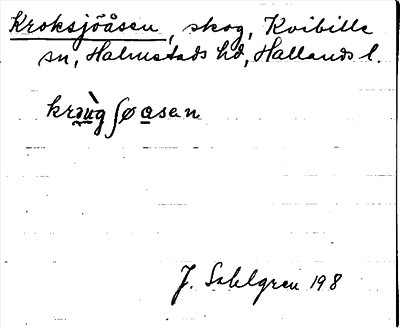 Kroksjöåsen, skog, Kvibille
sn, Halmstads hd, Hallands l.
krəu̇̀gʃøasen
J. Sahlgren 198